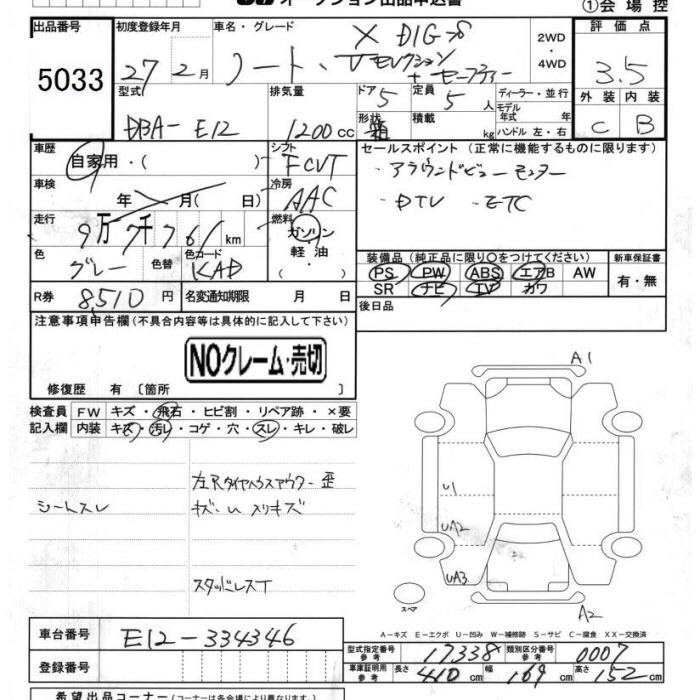 オークション出品申込書
①会場控
出品番号 5033
初度登録年月 27年2月
車名・グレード ノート、X DIG-S
Vセレクション+セーフティー
2WD
・
4WD
評価点 3.5
外装 C 内装 B
型式 DBA-E12
排気量 1200cc
ドア 5 定員 5人
形状 箱 積載 kg
ディーラー・並行
モデル年式 年
ハンドル 左・右
車歴 自家用・( )
シフト FCVT
車検 年 月( 日)
冷房 AAC
走行 9万7千761km
燃料 ガソリン
軽油
・( )
色 グレー 色替 色コード KAD
R券 8510円 名変通知期限 月 日
セールスポイント(正常に機能するものに限ります)
・アラウンドビューモニター
・DTV ・ETC
装備品(純正品に限り○をつけてください)
PS PW ABS エアB AW
SR ナビ TV カワ
新車保証書
有・無
後日品
注意事項申告欄(不具合内容等は具体的に記入して下さい)
NOクレーム・売切
修復歴 有〔箇所 〕
検査員 FW キズ・飛石・ヒビ割・リペア跡・×要
記入欄 内装 キズ・汚レ・コゲ・穴・スレ・キレ・破レ
シートスレ
左Rタイヤハウスアウター歪
キズ・U スリキズ
スタッドレスT
A1
U1
UA2
UA3
A2
スペア
A−キズ E−エクボ U−凹み W−補修跡 S−サビ C−腐食 XX−交換済
車台番号 E12-334346
登録番号
型式指定番号 参考 17338 類別区分番号 参考 0007
車庫証明用 参考 長さ 410cm 幅 169cm 高さ 152cm
希望出品コーナー